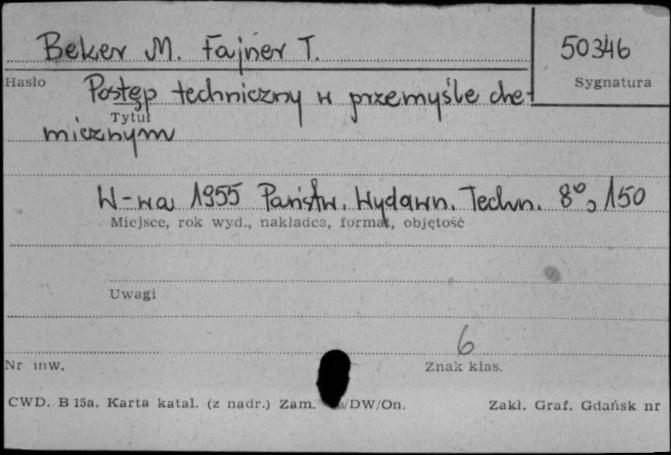 Beker M. Fajner T.
50346
Hasło
Sygnatura
Postęp techniczny w przemyśle che-
Tytuł
micznym
W-wa 1955 Państw. Wydawn. Techn. 8°, 150
Miejsce, rok wyd., nakładca, format, objętość
Uwagi
6
Nr inw.
Znak klas.
CWD. B 15a. Karta katal. (z nadr.) Zam. /DW/On.
Zakł. Graf. Gdańsk nr